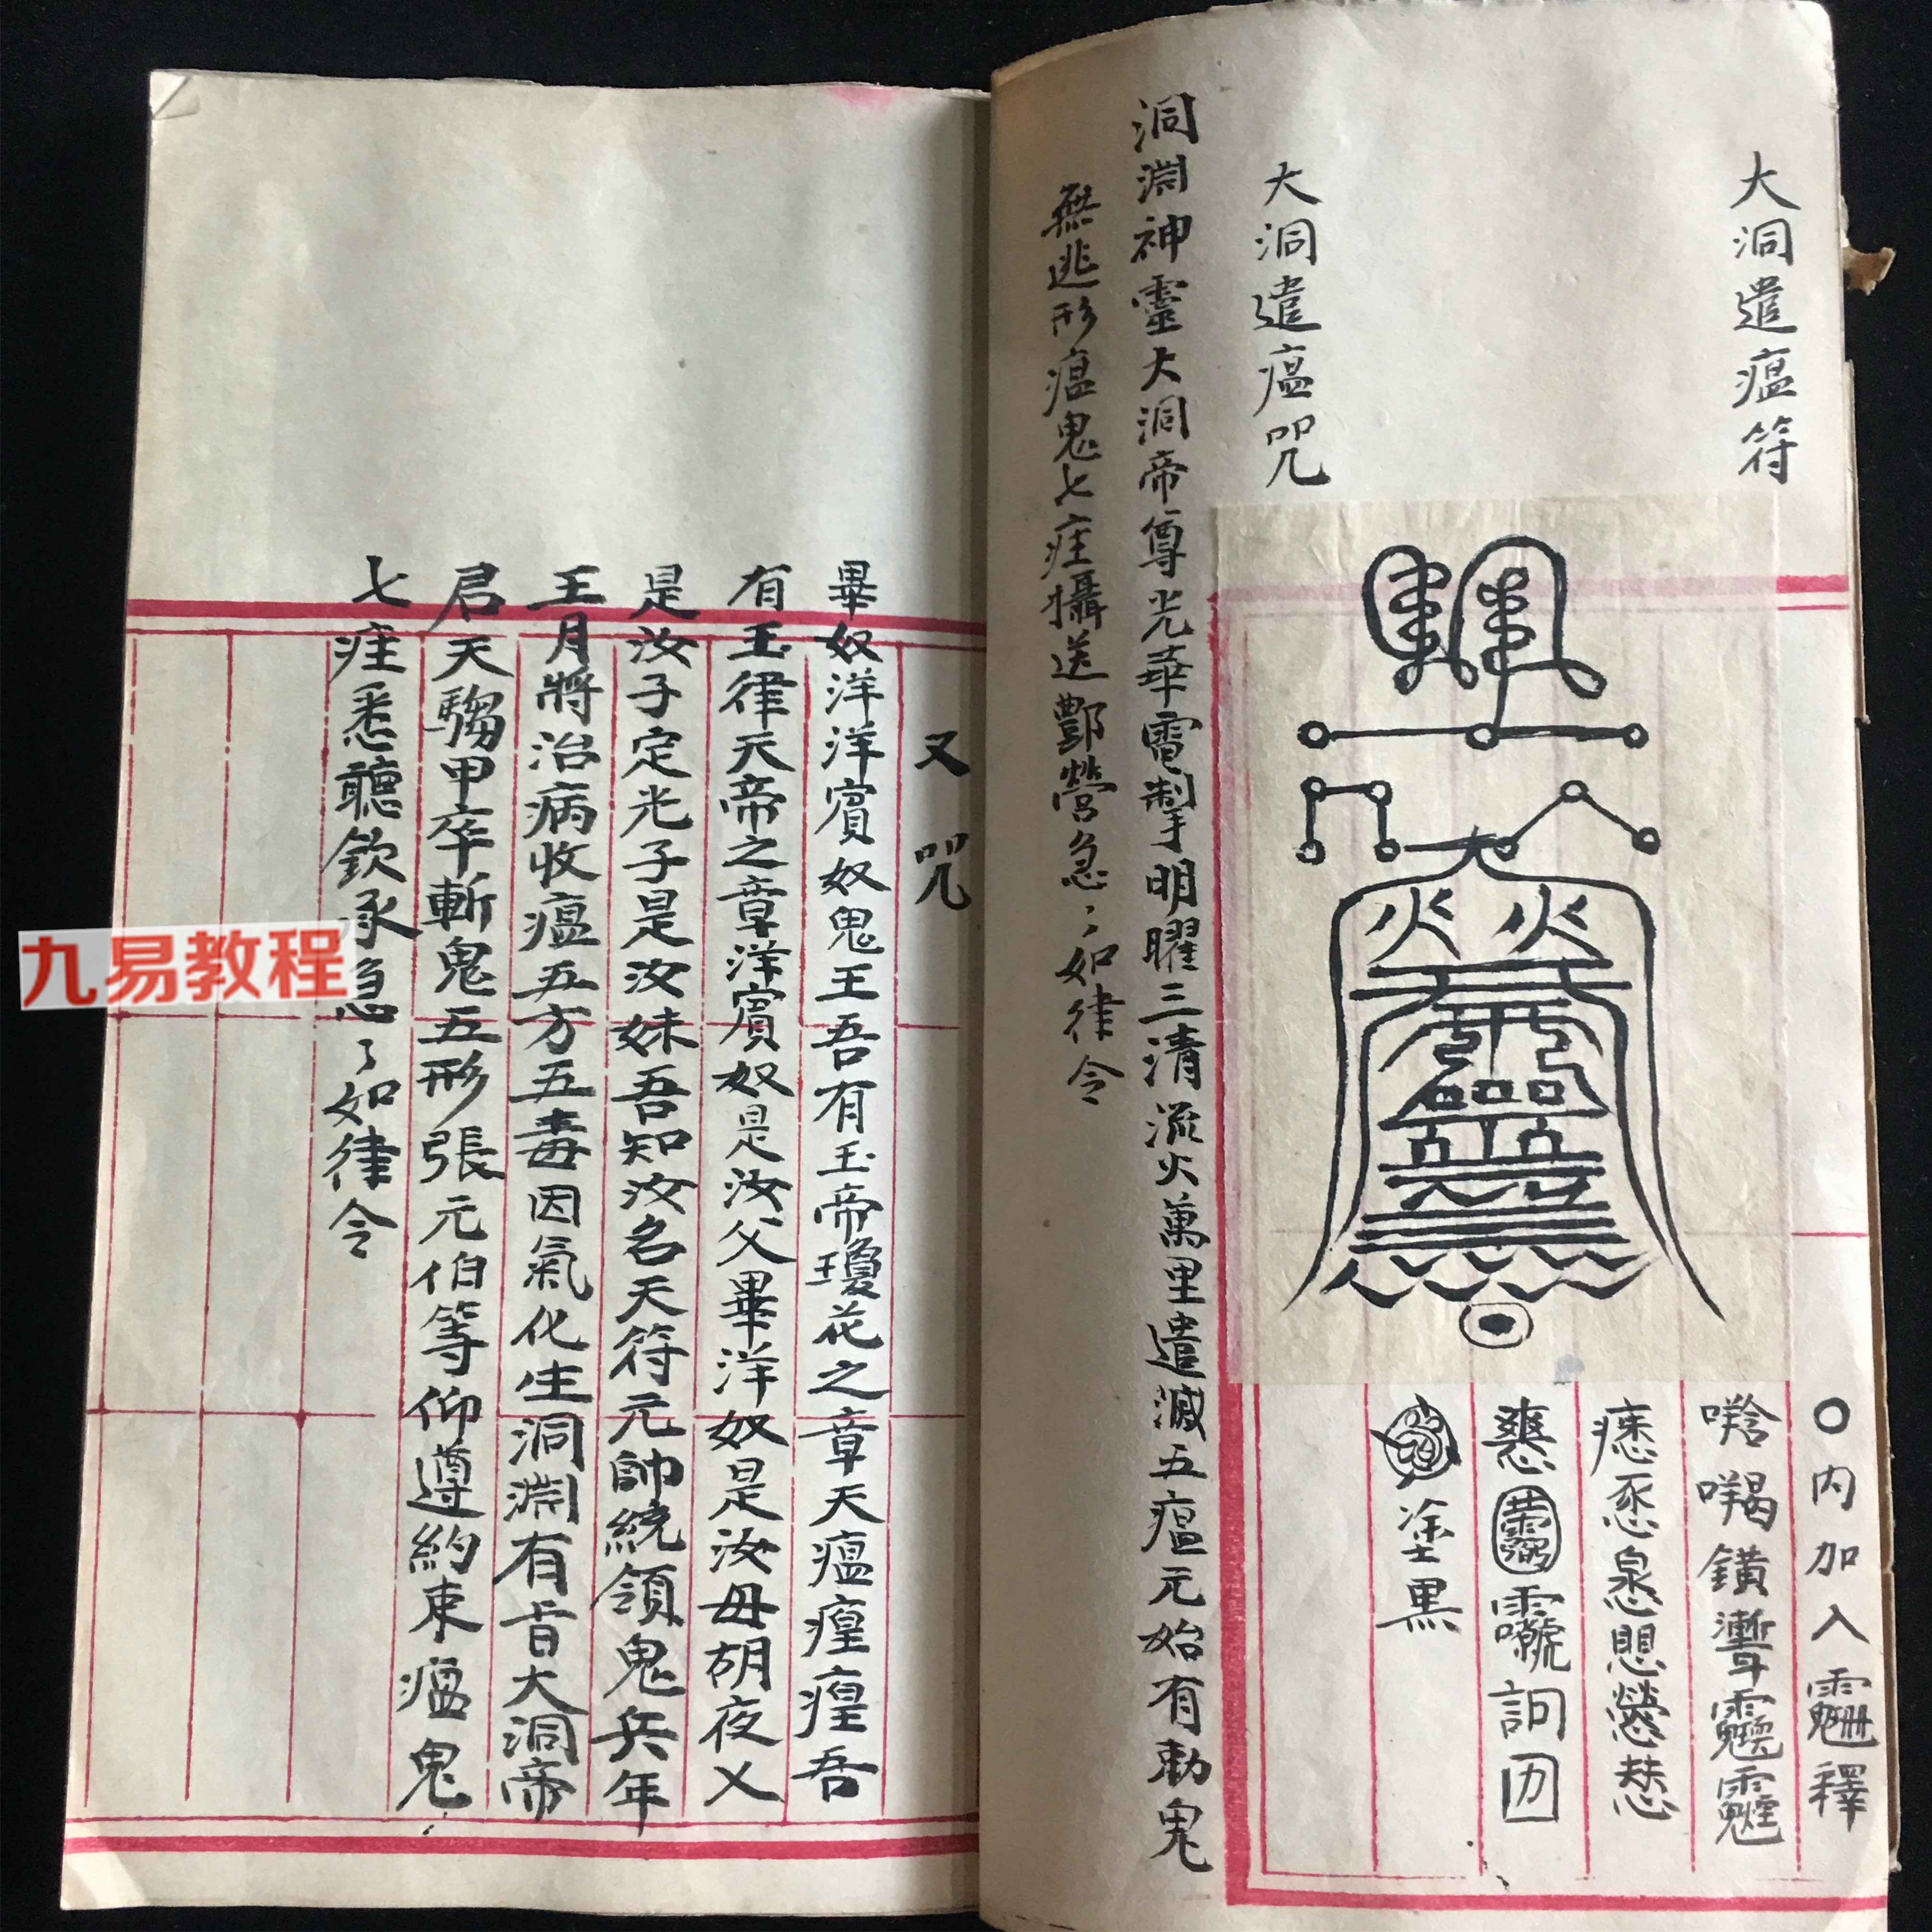 大洞遣瘟符
○內加入
釋
塗黑
大洞遣瘟咒
洞淵神靈大洞帝尊光華電掣明曜三清流火萬里遣滅五瘟元始有勅鬼
無逃形瘟鬼七疰攝送酆營急々如律令
又咒
畢奴洋洋賓奴鬼王吾有玉帝瓊花之章天瘟瘟瘟吾
有玉律天帝之章洋賓奴是汝父畢洋奴是汝母胡夜乂
是汝子定光子是汝妹吾知汝名天符元帥統領鬼兵年
王月將治病收瘟五方五毒因氣化生洞淵有旨大洞帝
君天騶甲卒斬鬼五形張元伯等仰遵約束瘟鬼
七疰悉聽欽承急々如律令
九易教程